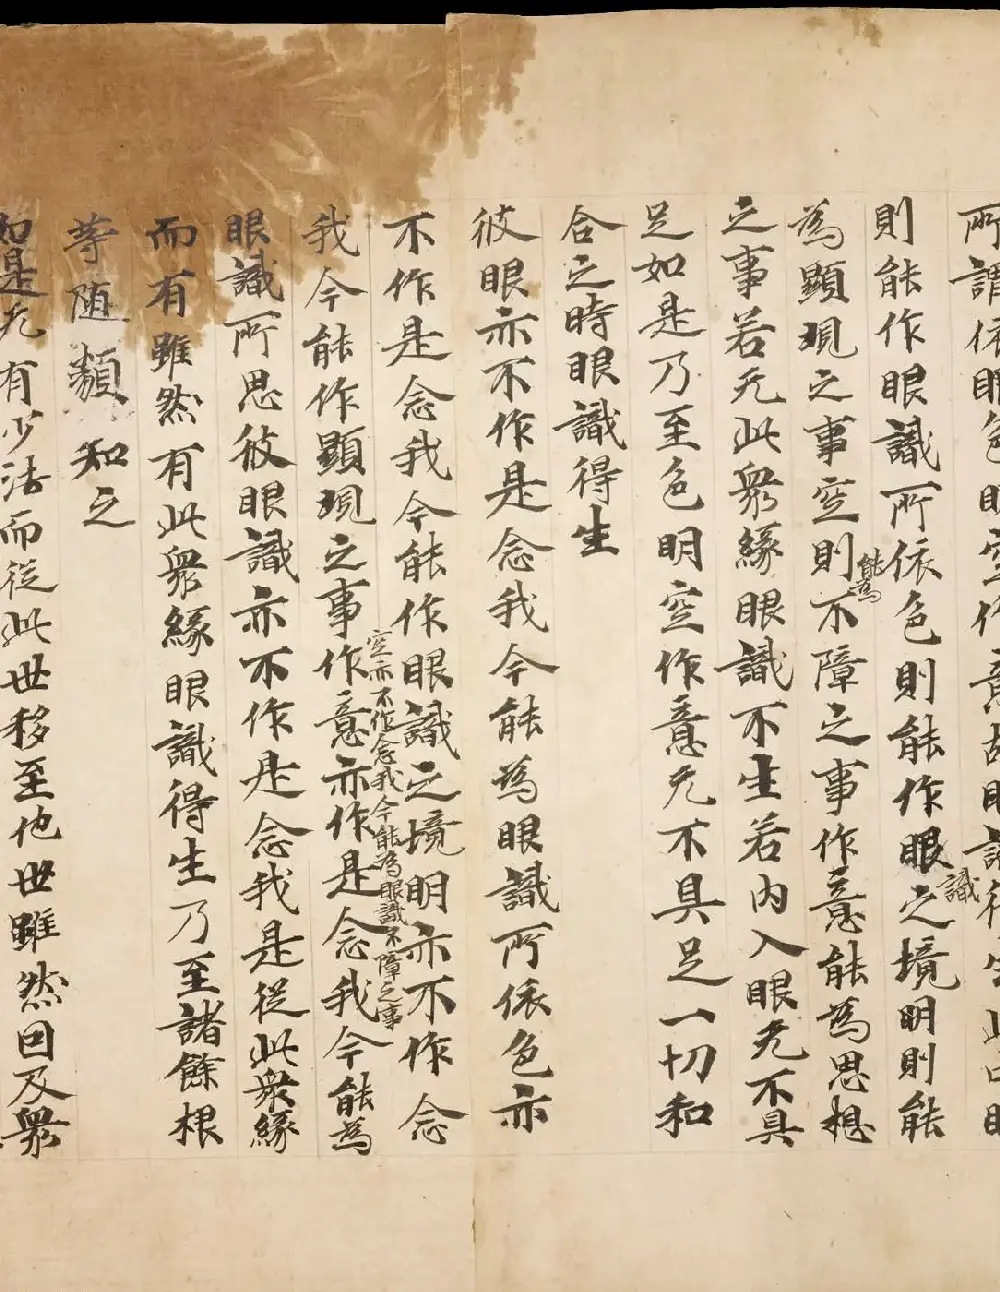 所謂依眼色明空作意故眼識得生此中眼
則能作眼識所依色則能作眼識之境明則能
為顯現之事空則能為不障之事作意能為思想
之事若无此衆緣眼識不生若內入眼无不具
足如是乃至色明空作意无不具足一切和
合之時眼識得生
彼眼亦不作是念我今能為眼識所依色亦
不作是念我今能作眼識之境明亦不作念
我今能作顯現之事空亦不作念我今能為眼識不障之事作意亦作是念我今能為
眼識所思彼眼識亦不作是念我是從此衆緣
而有雖然有此衆緣眼識得生乃至諸餘根
等随類知之
如是无有少法而從此世移至他世雖然因及衆